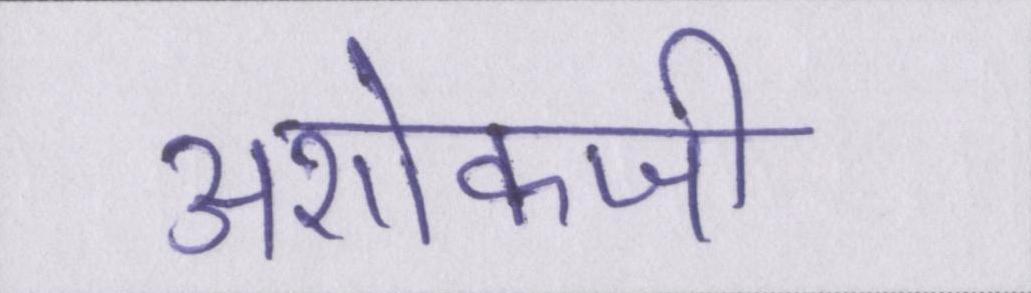 अशोकजी